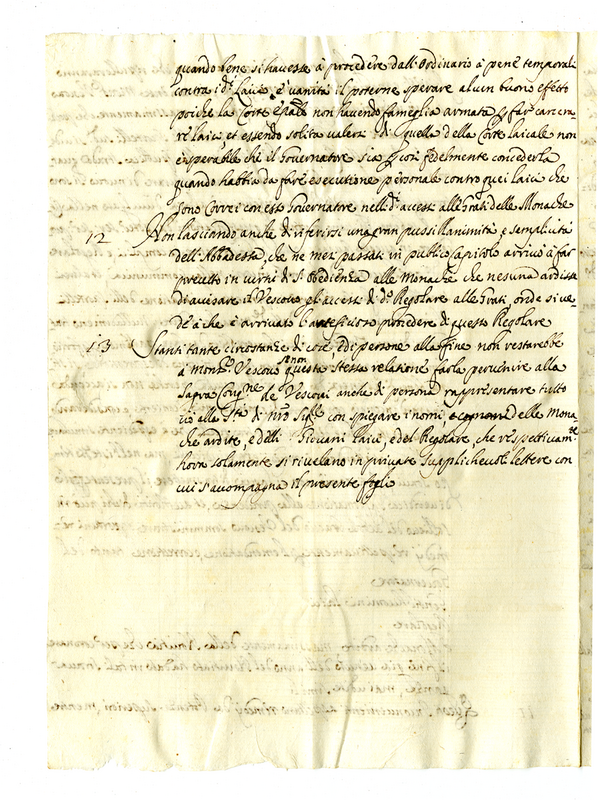 quando bene si havesse à procedere dall'Ordinario à pene temporali
contra i d.i Laici, è vanità il poterne sperare alcun buon effetto
poiche la Corte Ep̃ale non havendo famiglia armata p far carcera-
re laici, et essendo solita valersi di quella della Corte laicale non
è sperabile che il Governatore sia p così fedelmente concederla
quando habbia da fare esecutione personale contro quei laici che
sono Correi con esso Governatore nelli d.i accessi alle Grati delle Monache
12 Non lasciando anche di riferirsi una gran pusillanimità, e semplicità
dell'Abbadessa, che ne' mesi passati in publico Capitolo arrivò à far
precetto in virtù di S. Obedienza alle Monache che nesuna ardisse
di avisare il Vescovo gl'accessi di d.o Regolare alle Grati, onde si ve-
de à che è arrivato l'arteficioso procedere di questo Regolare
13 Stanti tante circostanze di cose, e di persone alla fine non restarebbe
à Mons.r Vescovo se non questa stessa relatione farla pervenire alla
Sagra Cong.ne de Vescovi anche di persona rappresentare tutto
ciò alla S.tà di N.ro Sig.re con spiegare i nomi, e cognomi delle Mona
che ardite, e delli Giovani laici, e del Regolare, che respettivam.te
hora solamente si rivelano in private supplichevoli lettere con
cui s'accompagna il presente foglio